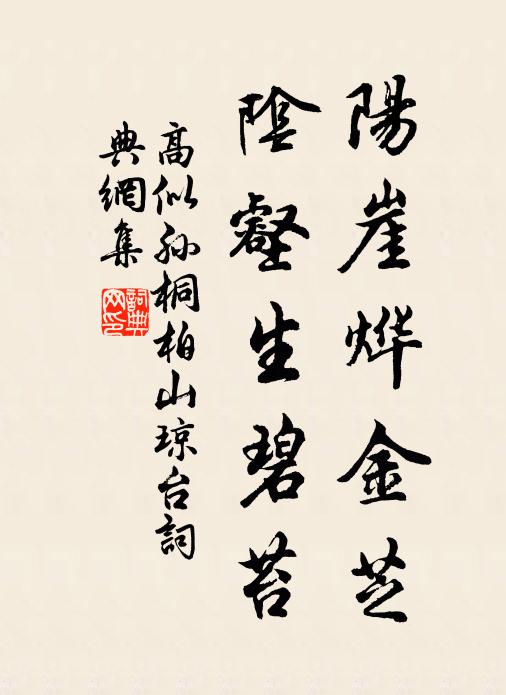 陽崖燁金芝
陰壑生碧苔
高似孫桐柏山琼台詞
典網集
詞典網印